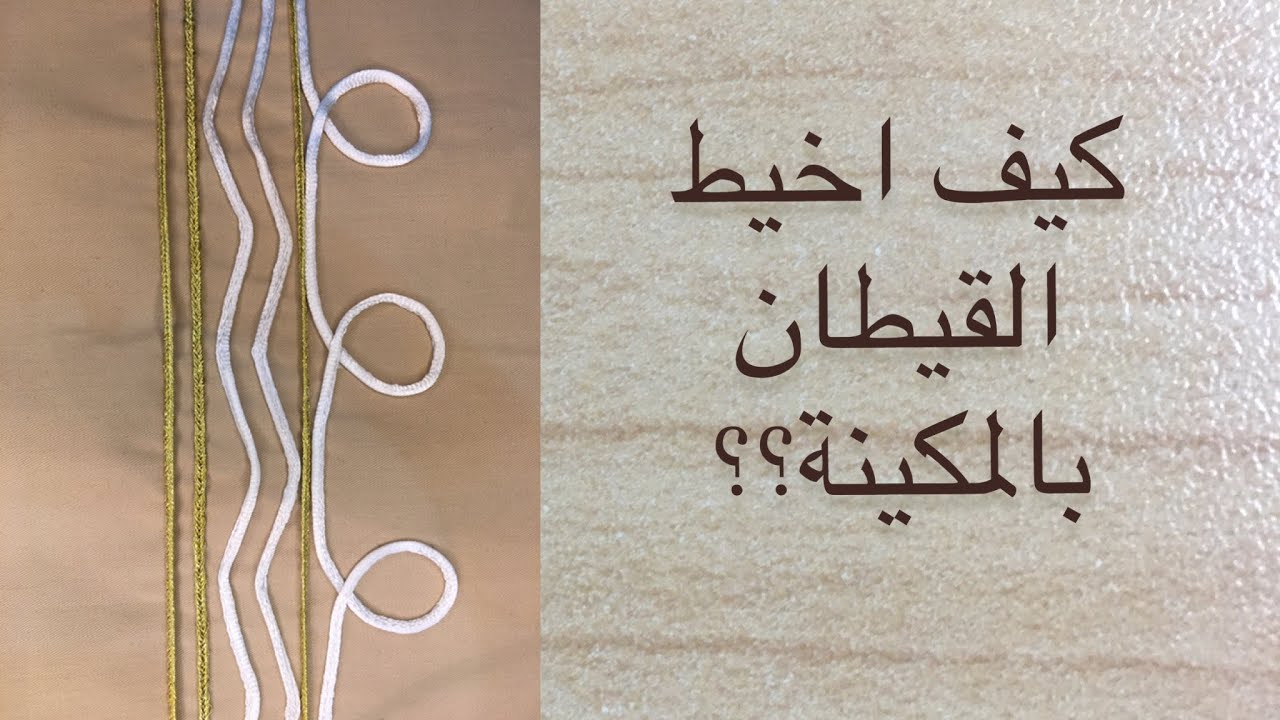 كيف اخيط
القيطان
بالمكينة؟؟